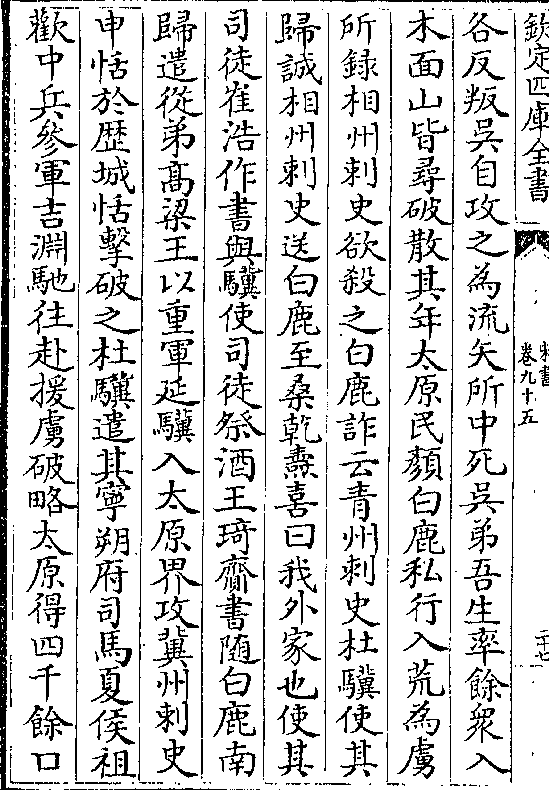 欽定四庫全書
宋書
卷九十五
二十七
各反叛吳自攻之為流矢所中死吳弟吾生率餘衆入
木面山皆尋破散其年太原民顏白鹿私行入荒為虜
所録相州刺史欲殺之白鹿詐云青州刺史杜驥使其
歸誠相州刺史送白鹿至桑乾燾喜曰我外家也使其
司徒崔浩作書與驥使司徒祭酒王琦齎書随白鹿南
歸遣從弟髙梁王以重軍延驥入太原界攻冀州刺史
申恬於歴城恬擊破之杜驥遣其寧朔府司馬夏侯祖
歡中兵參軍吉淵馳往赴援虜破略太原得四千餘口